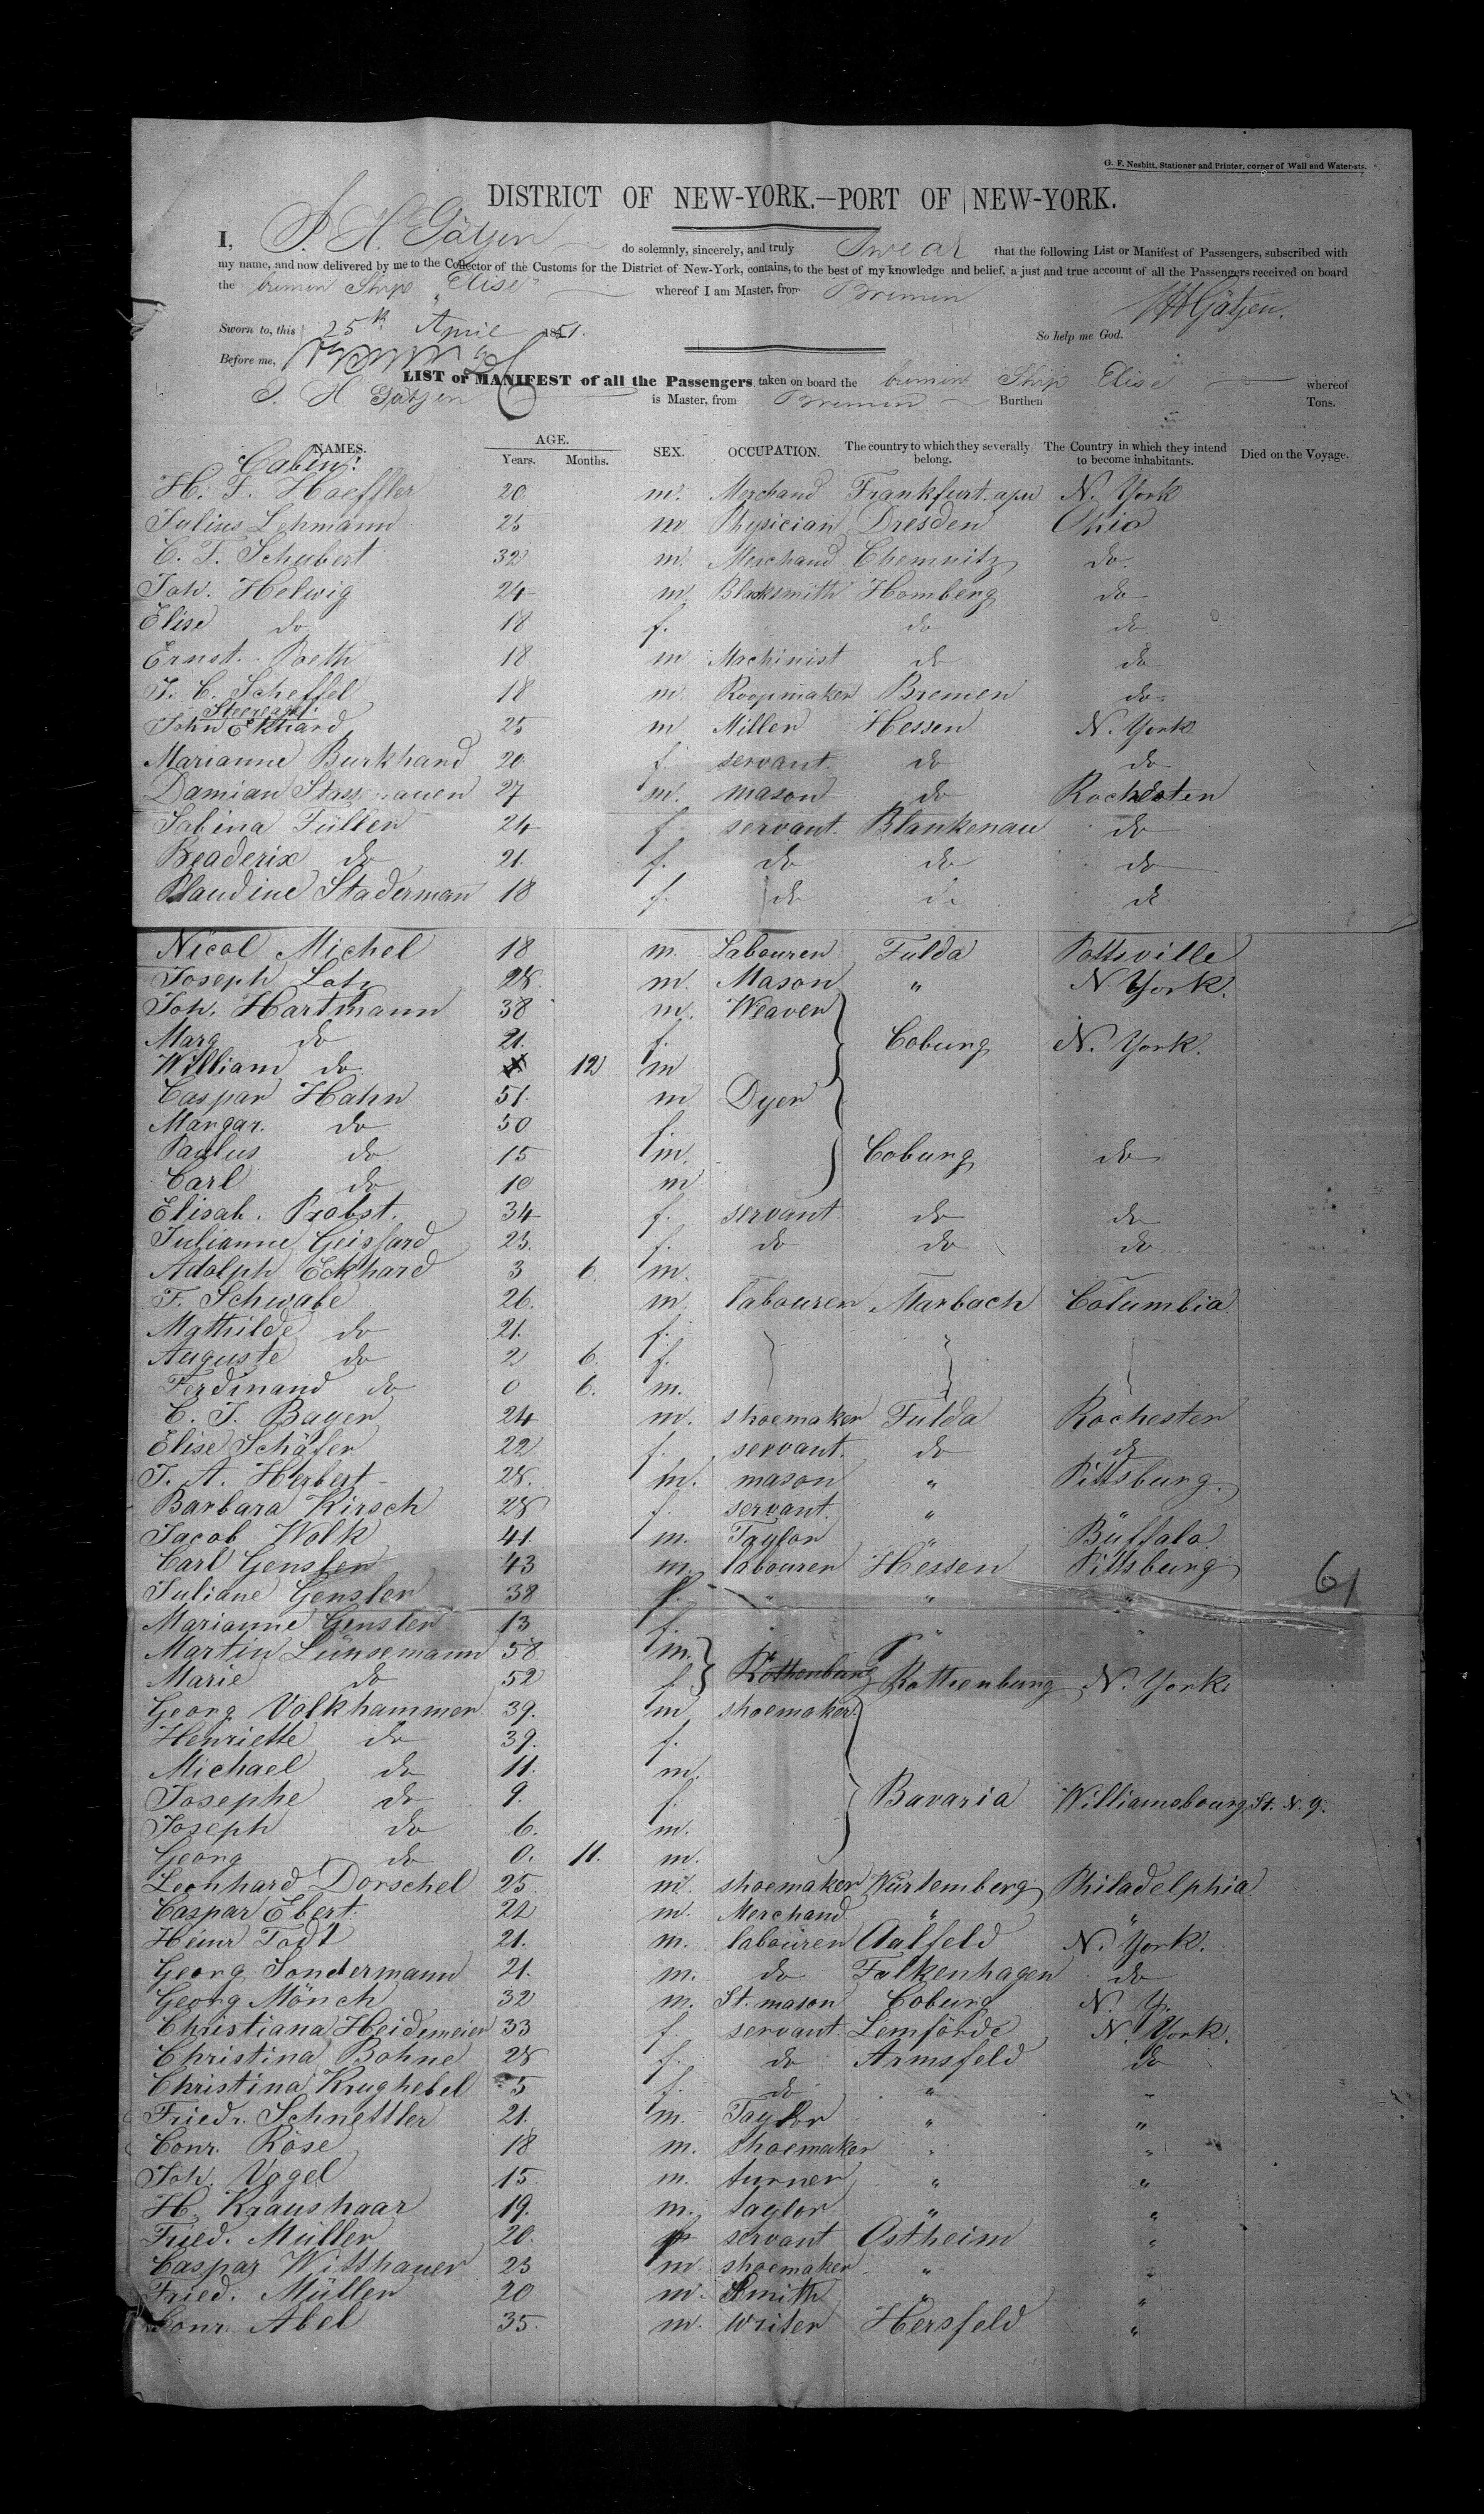 G. F. Nesbitt, Stationer and Printer, corner of Wall and Water-sts.
DISTRICT OF NEW-YORK.—PORT OF NEW-YORK.
I, J. H. Gätjen do solemnly, sincerely, and truly Swear that the following List or Manifest of Passengers, subscribed with
my name, and now delivered by me to the Collector of the Customs for the District of New-York, contains, to the best of my knowledge and belief, a just and true account of all the Passengers received on board
the bremen Ship Elise whereof I am Master, from Bremen
JHGätjen.
Sworn to, this 25th April 1851. So help me God.
Before me,
LIST or MANIFEST of all the Passengers taken on board the bremen Ship Elise whereof
J. H Gätjen is Master, from Bremen Burthen Tons.
NAMES. AGE. Years. Months. SEX. OCCUPATION. The country to which they severally belong. The Country in which they intend to become inhabitants. Died on the Voyage.
Cabin:
H. F. Haeffler 20. m. Merchand Frankfurt a/m N. York
Julius Lehmann 25 m Physician Dresden Ohio
C. F. Schubert 32 m. Merchand Chemnitz do.
Joh. Helwig 24 m. Blacksmith Homberg do
Elise do 18 f. do do
Ernst. Boeth 18 m Machinist do do
J. C. Scheffel 18 m. Roopmaker Bremen do.
Steerage:
John Eckhard 25 m Miller Hessen N. York
Marianne Burkhard 20 f. servant. do do
Damian 27 m. mason do Rochester
Sabina Füller 24 f servant. Blankenau do
Beaderix do 21. f. do do do
Klaudine Staderman 18 f. do do do
Nicol Michel 18 m. Labourer Fulda Pottsville
Joseph Lotz 28. m. Mason " N York.
Joh. Hartmann 38 m. Weaver
Marg do 21. f. Coburg N. York.
William do. 12 m
Caspar Hahn 51. m Dyer
Margar. do 50 f.
Paulus do 15 m. Coburg do
Carl do 10 m
Elisab. Probst. 34 f. servant do do
Julianne Geissard 23. f. do do do
Adolph Eckhard 3 6. m.
F. Schwabe 26. m. labourer Marbach Columbia.
Mathilde do 21. f.
Auguste do 2 6. f.
Ferdinand do 0 6. m.
C. J. Bayer 24 m. shoemaker Fulda Rochester
Elise Schäfer 22 f. servant. do do
J. A. Herbert 28. m. mason " Pittsburg.
Barbara Kirsch 28 f. servant. " "
Jacob Wolk 41. m. Taylor " Buffalo.
Carl Gensler 43 m. labourer Hessen Pittsburg
61
Juliane Gensler 38 f. " " "
Marianne Gensler 13 f. " "
Martin Lünsemann 58 m.
Marie do 52 f Rothenburg Rothenburg N. York
Georg Volkhammer 39. m shoemaker
Henriette do 39. f.
Michael do 11. m.
Josephe do 9. f. Bavaria Williamsbourg St. N. Y.
Joseph do 6. m.
Georg do 0. 11. m.
Leonhard Dorschel 25 m. shoemaker Würtemberg Philadelphia
Caspar Ebert 22 m. Merchand " "
Heinr Todt 21. m. labourer Aalfeld N. York.
Georg Sondermann 21. m. do Falkenhagen do
Georg Mönch 32 m. St. mason Coburg N. Y.
Christiana Heidemeier 33 f. servant. Lemförde N. York.
Christina Bohne 28 f. do Armsfeld do
Christina Krughebel 5 f. do " "
Friedr. Schnettler 21. m. Taylor " "
Conr. Röse 18 m. shoemaker " "
Joh. Vogel 15. m. turner " "
H. Kraushaar 19. m. taylor " "
Fried. Müller 20. servant Ostheim "
Caspar Witthauer 23 m shoemaker " "
Fried. Müller 20 m. Smith " "
Conr. Abel 35. m. writer Hersfeld "